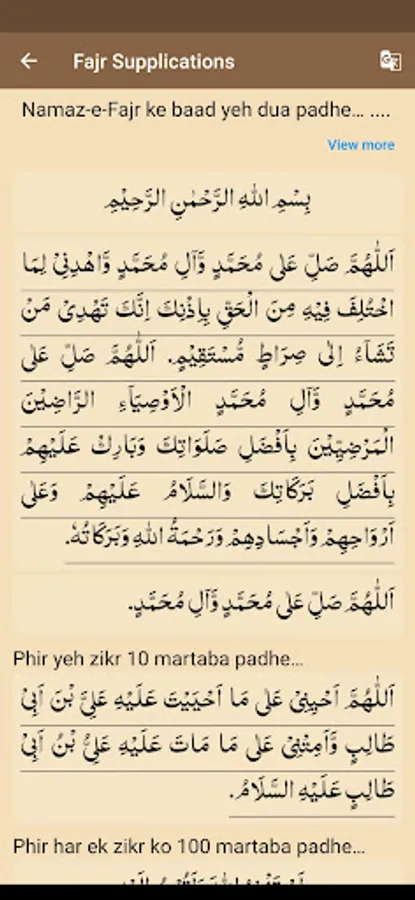 Fajr Supplications
Namaz-e-Fajr ke baad yeh dua padhe... ....
View more
بِسْمِ اللهِ الرَّحْمٰنِ الرَّحِيْمِ
اَللّٰهُمَّ صَلِّ عَلٰى مُحَمَّدٍ وَّاٰلِ مُحَمَّدٍ وَّاهْدِنِيْ لِمَا
اخْتُلِفَ فِيْهِ مِنَ الْحَقِّ بِاِذْنِكَ اِنَّكَ تَهْدِيْ مَنْ
تَشَآءُ اِلٰى صِرَاطٍ مُّسْتَقِيْمٍ. اَللّٰهُمَّ صَلِّ عَلٰى
مُحَمَّدٍ وَّاٰلِ مُحَمَّدٍ الْاَوْصِيَآءِ الرَّاضِيْنَ
الْمَرْضِيِّيْنَ بِاَفْضَلِ صَلَوَاتِكَ وَبَارِكْ عَلَيْهِمْ
بِاَفْضَلِ بَرَكَاتِكَ وَالسَّلَامُ عَلَيْهِمْ وَعَلٰى
اَرْوَاحِهِمْ وَاَجْسَادِهِمْ وَرَحْمَةُ اللهِ وَبَرَكَاتُهٗ.
اَللّٰهُمَّ صَلِّ عَلٰى مُحَمَّدٍ وَّاٰلِ مُحَمَّدٍ.
Phir yeh zikr 10 martaba padhe...
اَللّٰهُمَّ اَحْيِنِيْ عَلٰى مَا اَحْيَيْتَ عَلَيْهِ عَلِيَّ بْنَ اَبِيْ
طَالِبٍ وَّاَمِتْنِيْ عَلٰى مَا مَاتَ عَلَيْهِ عَلِيُّ بْنُ اَبِيْ
طَالِبٍ عَلَيْهِ السَّلَامُ.
Phir har ek zikr ko 100 martaba padhe...